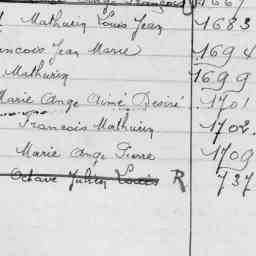 François 1667
Mathurin Louis Jean 1683
François Jean Marie 1694
Mathurin 1699
Marie Ange Aimé Desiré 1701
François Mathurin 1702.
Marie Ange Pierre 1709
Octave Julien Louis R 737